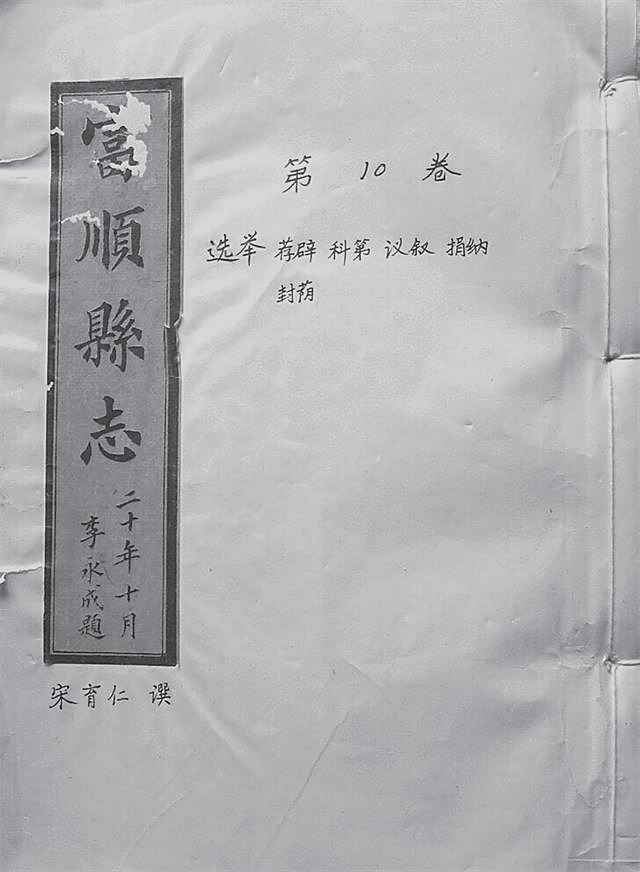 富順縣志
二十年十月
李永成題
宋育仁 譔
第 10 卷
选举 荐辟 科第 议叙 捐纳
封荫